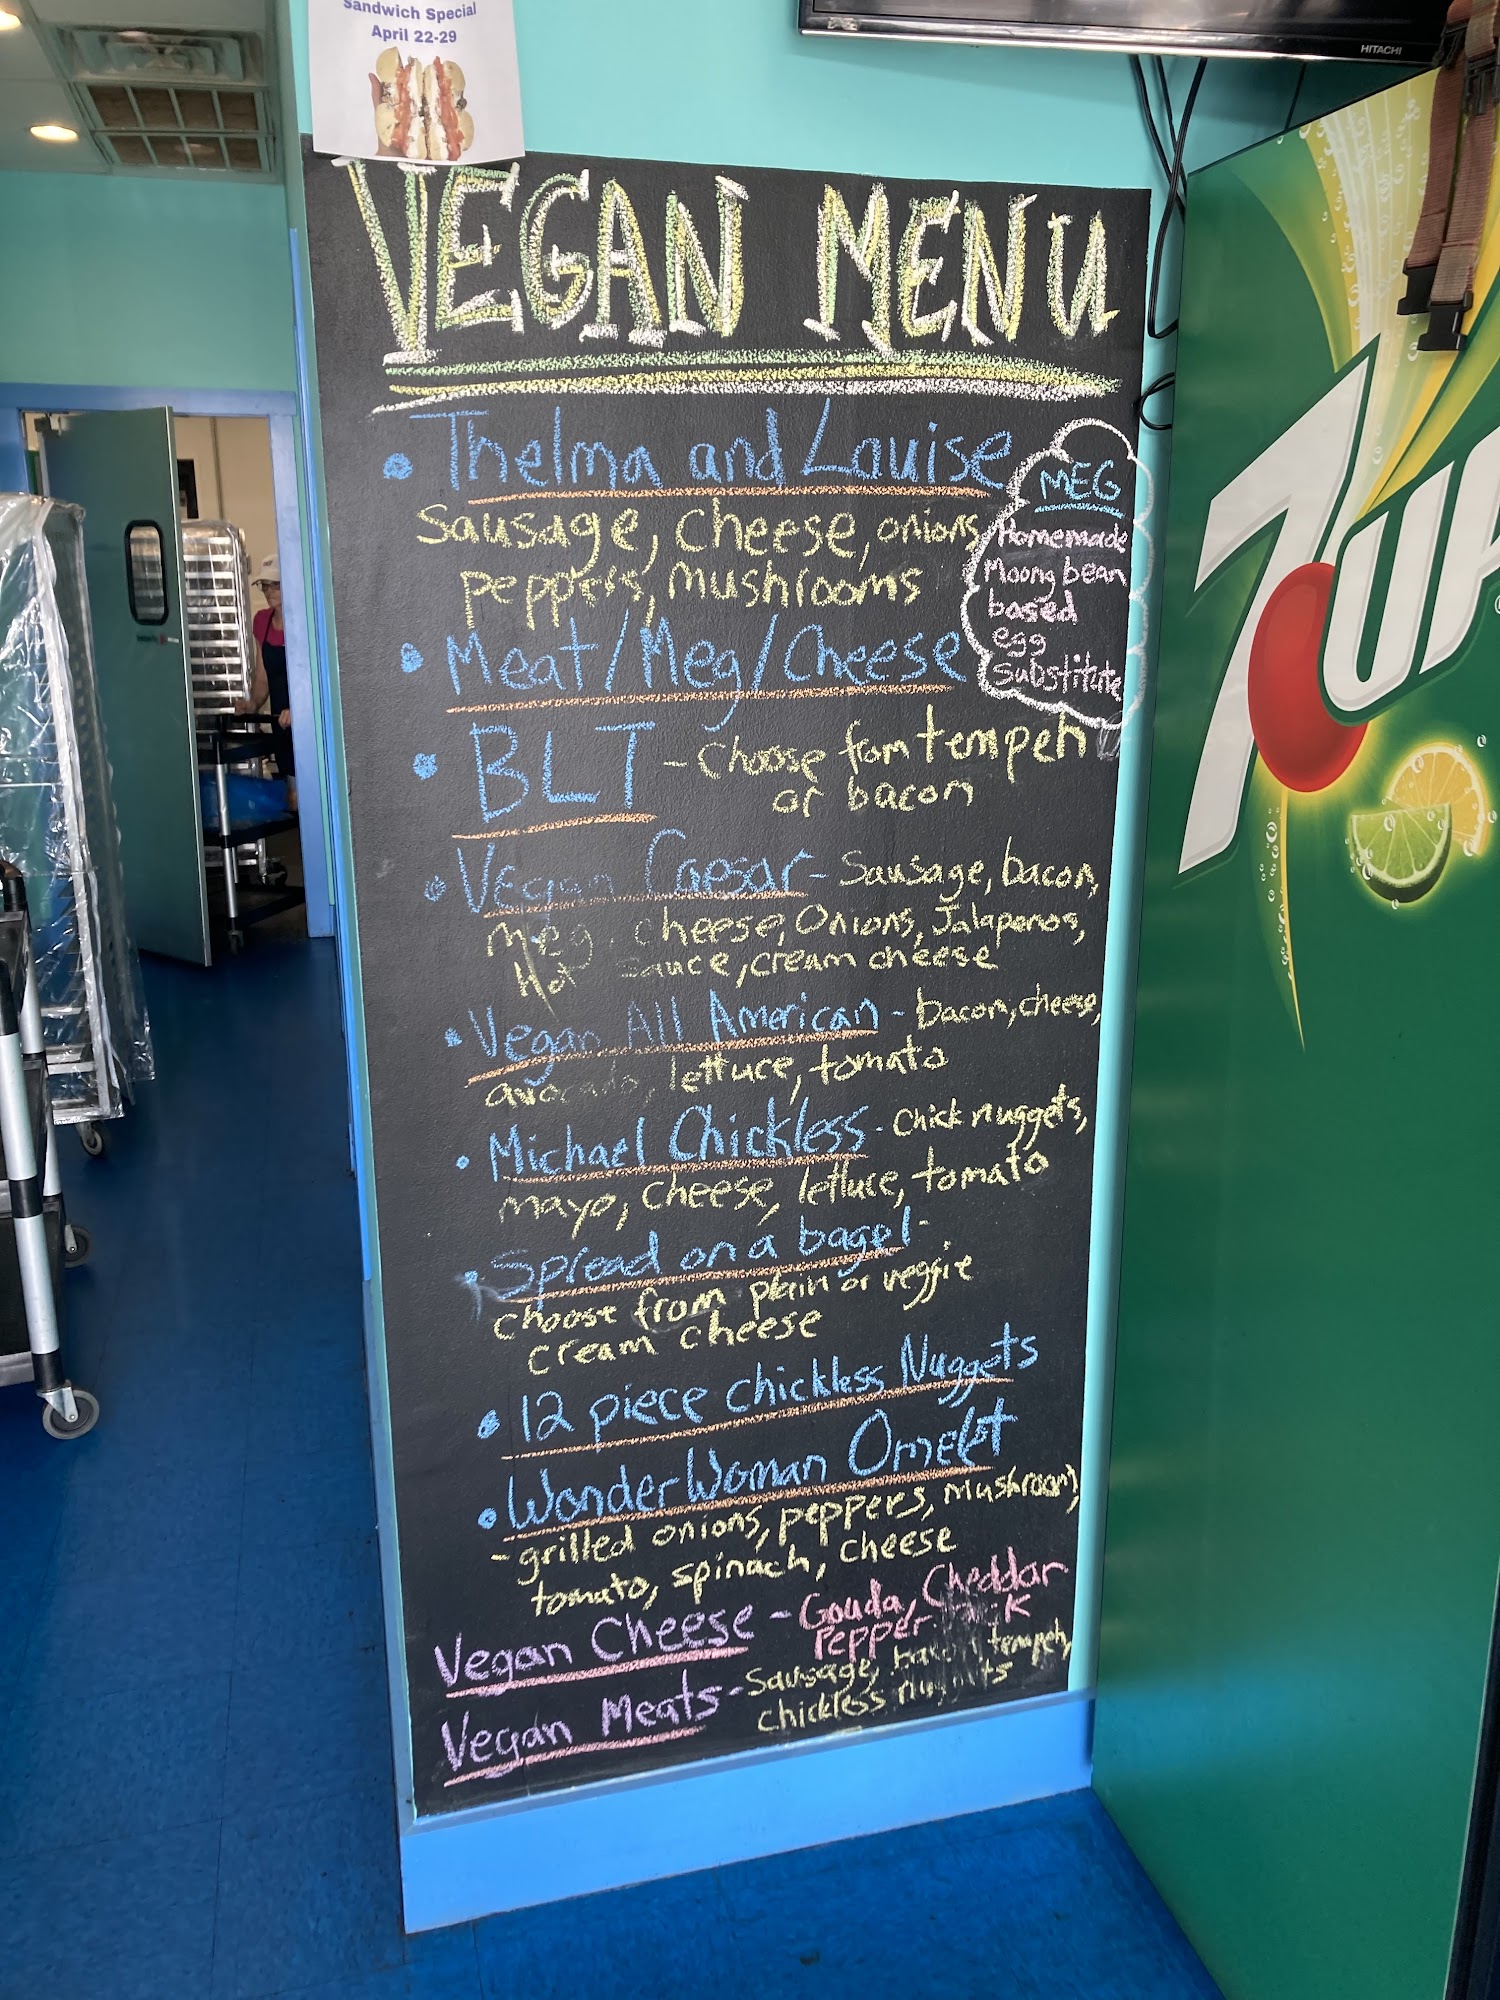 Sandwich Special
April 22-29
HITACHI
VEGAN MENU
• Thelma and Louise
Sausage, cheese, onions
peppers, mushrooms
MEG
Homemade
Moong bean
based
egg
substitute
• Meat/Meg/Cheese
• BLT - Choose from tempeh
or bacon
• Vegan Caesar - Sausage, bacon,
meg, cheese, Onions, Jalapenos,
hot sauce, cream cheese
• Vegan All American - bacon, cheese,
avocado, lettuce, tomato
• Michael Chickless - Chick nuggets,
mayo, cheese, lettuce, tomato
• Spread on a bagel -
choose from plain or veggie
cream cheese
• 12 piece chickless Nuggets
• Wonder Woman Omelet
- grilled onions, peppers, mushroom,
tomato, spinach, cheese
Vegan Cheese - Gouda, Cheddar
Pepper
Vegan Meats - Sausage, bacon, tempeh,
chickless nuggets
7UP